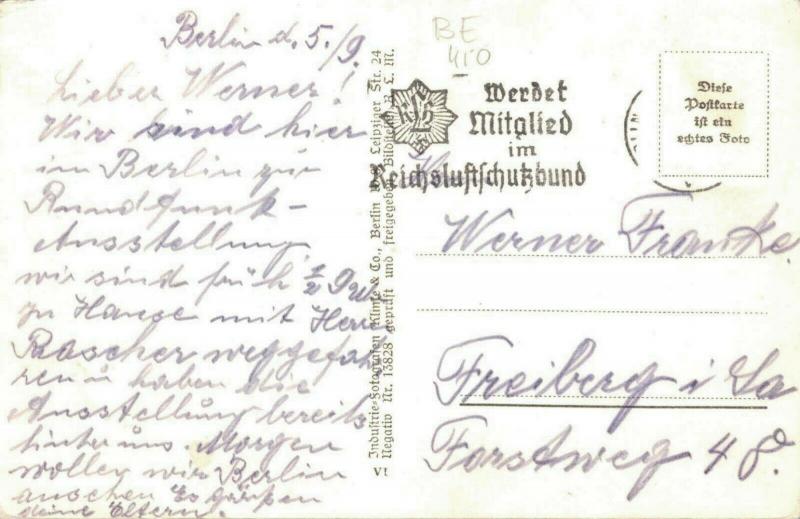 Berlin d. 5./9.
Lieber Werner!
Wir sind hier
in Berlin zur
Rundfunk-
Ausstellung,
wir sind früh ½ 9 Uhr
zu Hause mit Herrn
Rascher weggefah-
ren u haben die
Ausstellung bereits
hinter uns. Morgen
wollen wir Berlin
anschen Es grüßen
deine Eltern.
Industrie-Fotografen Klinke & Co., Berlin Leipziger Str. 24
Negativ Nr. 13828 geprüft und freigegeben Bildnr. R. L. M.
Vt
BE
410
RLB
Werdet
Mitglied
im
Reichsluftschutzbund
Diese
Postkarte
ist ein
echtes Foto
Werner Franke
Freiberg i Sa
Forstweg 48.